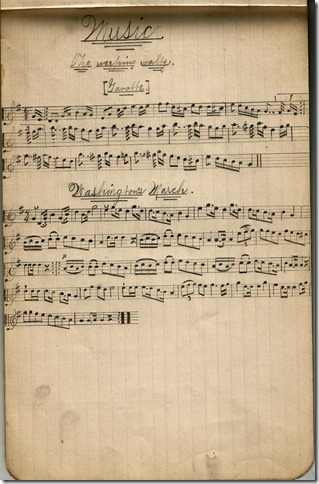 Music.
The weeping waltz.
[Gavotte.]
1
Washington's March.